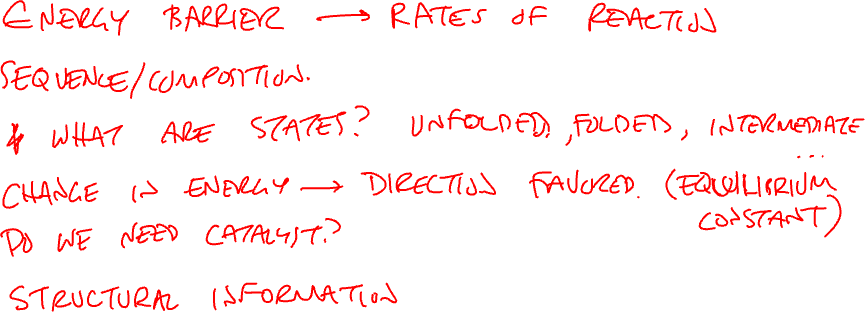 ENERGY BARRIER → RATES OF REACTION
SEQUENCE/COMPOSITION.
* WHAT ARE STATES? UNFOLDED, FOLDED, INTERMEDIATE ...
CHANGE IN ENERGY → DIRECTION FAVORED. (EQUILIBRIUM
CONSTANT)
DO WE NEED CATALYST?
STRUCTURAL INFORMATION